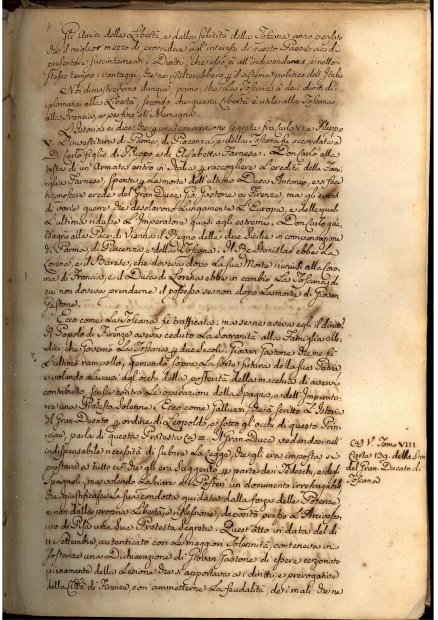 Gli Amici della Libertà, e della felicità della Toscana anno pensato
che il miglior mezzo di provvedere agl'interessi di questo Paese sia di
presentare succintamente i Diritti, che esso à all'independenza, e nello
stesso tempo i vantaggi, che ne risulterebbero pel sistema politico dell'Italia
Noi dimostreremo dunque primo: che la Toscana à dei diritti di-
plomatici alla Libertà; secondo che questa Libertà è utile alla Toscana
alla Francia, e perfino all'Alemagna.
L'Istoria ci dice, che per una convenzione segreta fra Carlo VI. e Filippo
V. l'investitura di Parma, di Piacenza, e della Toscana fu accordata a
D. Carlo figlio di Filippo, e di Elisabetta Farnese. Don Carlo alla
testa di un'Armata entrò in Italia per raccogliere l'eredità della Fami-
glia Farnese, spenta per la morte dell'ultimo Duca Antonio, e si fece
riconoscere erede del Gran Duca Gio. Gastone a Firenze, ma gli eventi
di varie guerre che desolarono lungamente l'Europa, e delle quali
l'ultima ridusse l'Imperatore quasi agli estremi, Don Carlo gua-
dagnò alla Pace di Vienna il Regno delle due Sicilie in compensazione
di Parma, di Piacenza, e della Toscana. Il Re Stanislao ebbe la
Lorena, e il Barese, che doveva dopo la sua Morte riunirsi alla Coro-
na di Francia, e il Duca di Lorena ebbe in cambio la Toscana, di
cui non doveva prenderne il possesso se non dopo la morte di Giovan
Gastone.
Ecco come la Toscana fu trafficata: ma se ne aveva egli il diritto?
Il Popolo di Firenze aveva ceduto la Sovranità alla Famiglia Me-
dici che governò la Toscana per due Secoli. Giovan Gastone che ne fu
l'ultimo rampollo, gemendo sopra la sorte futura della sua Patria
e volendo lavarsi dagl'occhi della posterità della macchia di avere
contribuito, fece contro le operazioni della Spagna, e dell'Imperato-
re una Protesta solenne. Ecco come Galluzzi, che à scritto l'Istoria
del Gran Ducato per ordine di Leopoldo, e sotto gli occhi di questo Prin-
cipe, parla di questa Protesta (a) = Il Gran Duca vedendosi nell'
indispensabile necessità di subire la Legge, che gli era imposta, se
prestava a tutto ciò che gli era suggerito per parte dei Tedeschi, e degli
Spagnoli, ma volendo lasciare ai Posteri un documento irrefragabile
che giustificasse la sua condotta guidata dalla forza delle Potenze
e non dalla propria libertà, e riflessione, depositò presso l'Arcivesco-
vo di Pisa una sua Protesta segreta. Quest'atto in data del dì
11. Settembre, autenticato con le maggiori solennità, conteneva in
sostanza una Dichiarazione di Giovan Gastone di essere cerziorato
pienamente della Lesione che s'apportava ai diritti, e prerogative
della Città di Firenze, con ammetterne la feudalità, dei mali che ne
(a) V. Tomo VIII
Carta 129. della Stor.
del Gran Ducato di
Toscana